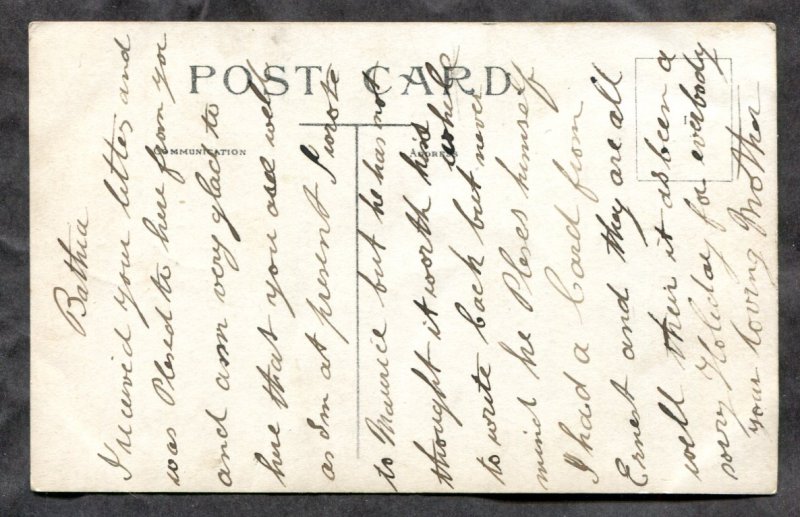 POST CARD
COMMUNICATION
ADDRESS
Bathia
I received your letter and
was Plesed to here from you
and am very glad to
here that you are well
as I'm at present I wrote
to Maurice but he has not
thought it worth his while
to write back but never
mind he Pleses himself
I had a Card from
Ernest and they are all
well their it as been a
sorry Holiday for everbody
your loving Mother